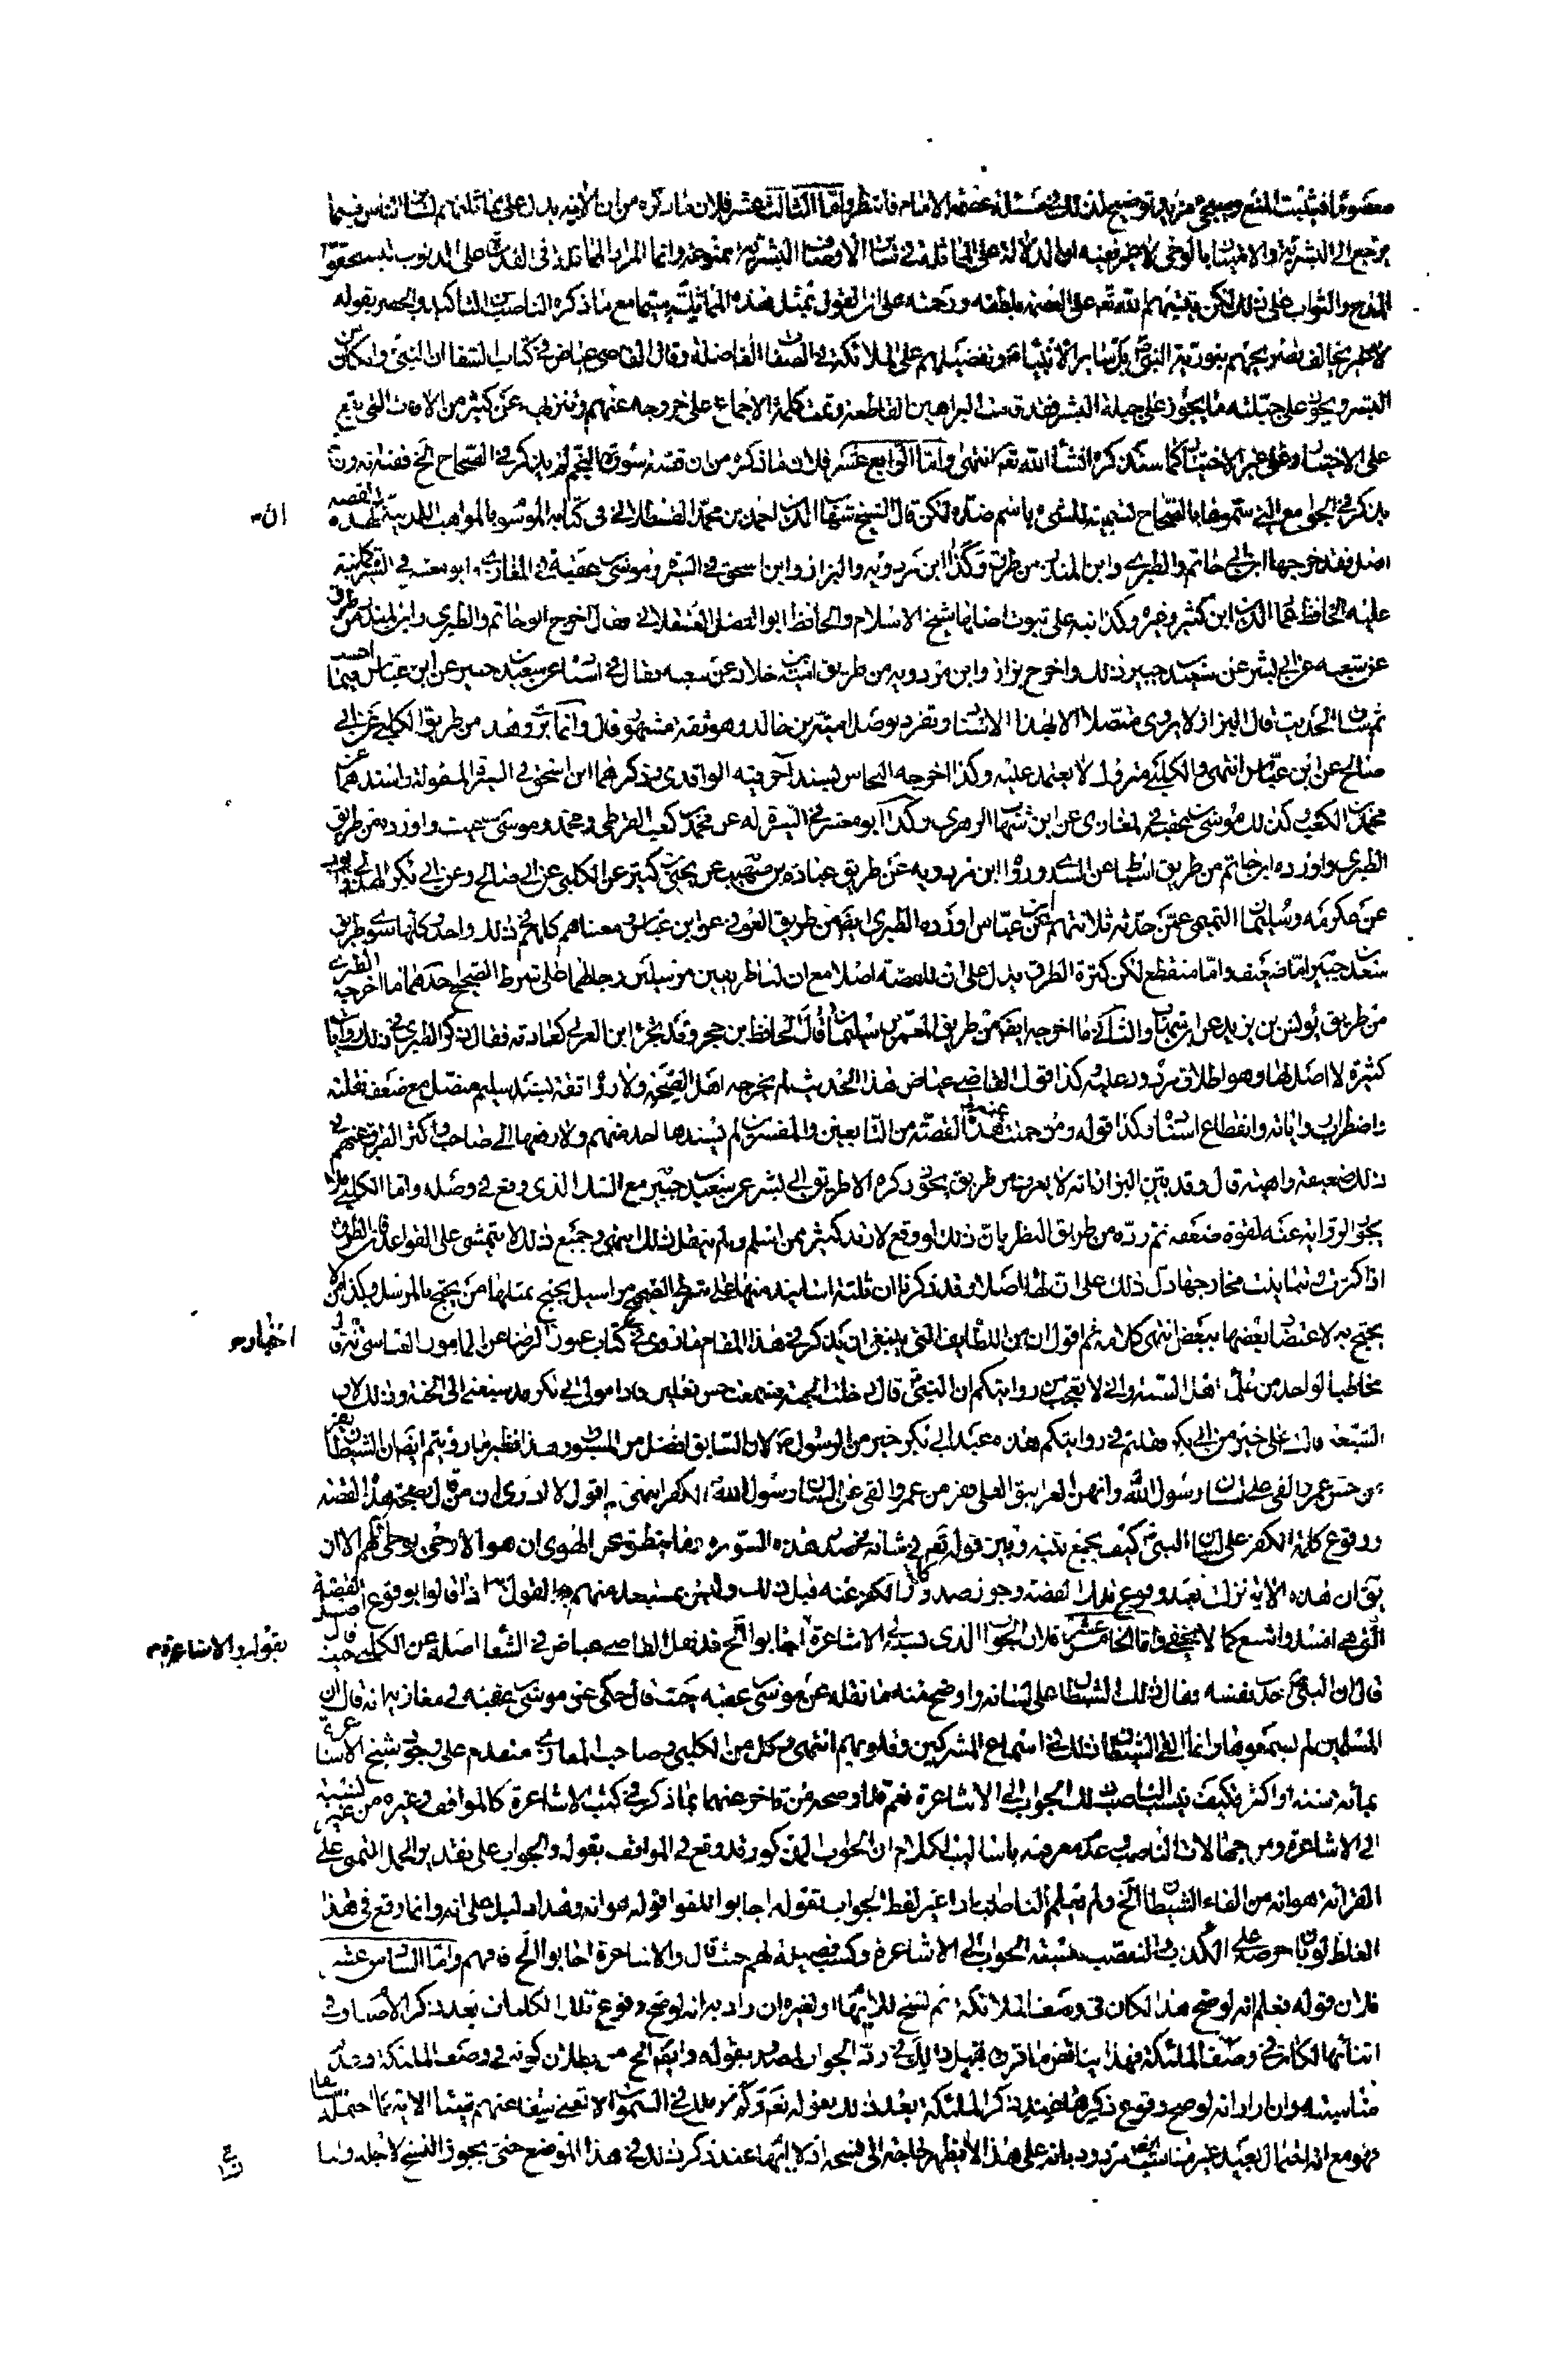 معصوما فيثبت المنع وسيجيء مزيد توضيح لذلك في مسئلة عصمة الامام فانتظر واما الثالث عشر فلان ما ذكره من ان الآية يدل على مماثلتهم لسائر الناس فيما
يرجع الى البشرية والامتياز بالوحي لا غير ففيه ان الدلالة على المماثلة في سائر الاوصاف البشرية ممنوعة وانما المراد المماثلة في القدرة على الذنوب ليستحقوا
المدح والثواب على ذلك لكن يثبتهم الله تعالى على العصمة بلطفه ورحمته على ان القول بمثل هذه المماثلة سيما مع ما ذكره الناصب من التاكيد والحصر بقوله
لا غير يخالف تصريحهم بنورية النبي بل سائر الانبياء وتفضيلهم على الملائكة في الصفات الفاضلة وقال القاضي عياض في كتاب الشفا ان النبي وان كان من
البشر ويجوز على جبلته ما يجوز على جبلة البشر فقد قامت البراهين القاطعة وتمت كلمة الاجماع على خروجه عنهم وتنزيهه عن كثير من الآفات التي تقع
على الاختيار وعلى غير الاختيار كما سنذكره انشاء الله تعالى انتهى واما الرابع عشر فلان ما ذكره من ان قصة سورة النجم لم يذكر في الصحاح الخ ففيه انه وان
يذكر في الجوامع التي سموها بالصحاح لتسمية الشيء باسم ضده لكن قال الشيخ شهاب الدين احمد بن محمد القسطلاني في كتابه الموسوم بالمواهب اللدنية ان لهذه القصة
اصل فقد خرجها ابن ابي حاتم والطبري وابن المنذر من طرق وكذا ابن مردويه والبزار وابن اسحق في السيرة وموسى بن عقبة في المغازي وابو معشر في السير كما نبه
عليه الحافظ عماد الدين ابن كثير وغيره وكذا نبه على ثبوت اصلها شيخ الاسلام والحافظ ابو الفضل العسقلاني فقال اخرج ابن ابي حاتم والطبري وابن المنذر من طرق
عن شعبة عن ابي بشر عن سعيد بن جبير ذلك واخرج البزار وابن مردويه من طريق امية بن خالد عن شعبة فقال في اسناده عن سعيد بن جبير عن ابن عباس فيما احسب
ثم ساق الحديث قال البزار لا يروى متصلا الا بهذا الاسناد وتفرد بوصله امية بن خالد وهو ثقة مشهور قال وانما يروى هذا من طريق الكلبي عن ابي
صالح عن ابن عباس انتهى والكلبي متروك لا يعتمد عليه وكذا اخرجه النحاس بسند آخر فيه الواقدي وذكرها ابن اسحق في السيرة المنقولة واسندها عن
محمد بن كعب وكذلك موسى بن عقبة في المغازي عن ابن شهاب الزهري وكذا ابو معشر في السيرة له عن محمد بن كعب القرظي ومحمد بن قيس واورده من طريق
الطبري واورده ابن ابي حاتم من طريق اسباط عن السدي ورواه ابن مردويه عن طريق عباد بن صهيب عن يحيى بن كثير عن الكلبي عن ابي صالح وعن ابي بكر الهذلي وايوب
عن عكرمة وسليمان التيمي عمن حدثه ثلاثتهم عن ابن عباس واورده الطبري ايضا من طريق العوفي عن ابن عباس ومعناهم كلهم في ذلك واحد وكلها سوى طريق
سعيد بن جبير اما ضعيف واما منقطع لكن كثرة الطرق يدل على ان للقصة اصلا مع ان لها طريقين مرسلين رجالهما على شرط الصحيح احدهما ما اخرجه الطبري
من طريق يونس بن يزيد عن ابن شهاب والثاني ما اخرجه ايضا من طريق المعتمر بن سليمان قال الحافظ بن حجر وقد تجرء ابن العربي كعادته فقال ذكر الطبري في ذلك روايات
كثيرة لا اصل لها وهو اطلاق مردود عليه وكذا قول القاضي عياض هذا الحديث لم يخرجه اهل الصحة ولا رواه ثقة بسند سليم متصل مع ضعف نقلته
واضطراب رواياته وانقطاع اسناده وكذا قوله ومن حملت عنه هذه القصة من التابعين والمفسرين لم يسندها احد منهم ولا رفعها الى صاحب واكثر الطرق عنهم في
ذلك ضعيفة واهية قال وقد بين البزار انه لا يعرف من طريق يجوز ذكره الا طريق ابي بشر عن سعيد بن جبير مع الشك الذي وقع في وصله واما الكلبي فلا
يجوز الرواية عنه لقوة ضعفه ثم رده من طريق النظر بان ذلك لو وقع لارتد كثير ممن اسلم ولم ينقل ذلك انتهى وجميع ذلك لا يتمشى على القواعد فان الطرق
اذا كثرت وتباينت مخارجها دل ذلك على ان لها اصلا وقد ذكرنا ان ثلثة اسانيد منها على شرط الصحيح مراسيل يحتج بمثلها من يحتج بالمرسل وكذا من لا
يحتج به لاعتضاد بعضها ببعض انتهى كلامه ثم اقول ان من اللطايف التي ينبغي ان يذكر في هذا المقام ما روي في كتاب عيون اخبار الرضا عن المامون العباسي انه قال
مخاطبا لواحد من علماء اهل السنة واني لاتعجب من روايتكم ان النبي قال دخلت الجنة فسمعت حس نعلين فاذا مولى ابي بكر قد سبقني الى الجنة وذلك لان
الشيعة قالت علي خير من ابي بكر فقلتم في روايتكم هذه عبد ابي بكر خير من الرسول لان السابق افضل من المسبوق وهذا نظير ما رويتم ايضا ان الشيطان يفر
من حس عمر والقى على لسان رسول الله وانهن الغرانيق العلى ففر من عمر والقى على لسان رسول الله الكفر انتهى واقول لا ادري ان من قال بصحة هذه القصة
ووقوع كلمة الكفر على لسان النبي كيف يجمع بينه وبين قوله تعالى في شانه بخصوص هذه السورة وما ينطق عن الهوى ان هو الا وحي يوحى اللهم الا ان
يق ان هذه الآية نزلت بعد وقوع تلك القصة وجوز صدور الكفر عنه قبل ذلك وليس بمستبعد منهم هذا القول اذا قالوا بوقوع القصة
التي هي افسد واشنع كما لا يخفى واما الخامس عشر فلان الجواب الذي نسبه الى الاشاعرة بقوله والاشاعرة اجابوا الخ قد نقل القاضي عياض في الشفا اصله عن الكلبي حيث قال
قال ان النبي حدث نفسه فقال ذلك الشيطان على لسانه واوضح منه ما نقله عن موسى بن عقبة حيث قال حكى عن موسى بن عقبة في مغازيه انه قال ان
المسلمين لم يسمعوها وانما القى الشيطان ذلك في اسماع المشركين وقلوبهم انتهى وكل من الكلبي وصاحب المغازي متقدم على وجود شيخ الاشاعرة
بمائة سنة او اكثر فكيف ينسب الناصب ذلك الجواب الى الاشاعرة نعم قد اوضحه من تاخر عنهما بما ذكر في كتب الاشاعرة كالمواقف وغيره من غير نسبة
الى الاشاعرة ومن جهالات الناصب وعدم معرفته باساليب الكلام ان الجواب المذكور قد وقع في المواقف بقوله والجواب على تقدير الحمل التمني على
القرائة هو انه من القاء الشيطان الخ ولم يعلم الناصب انه اذا غير لفظ الجواب بقوله اجابوا لغوا قوله هو انه وهذا دليل على انه وانما وقع في هذا
الغلط لوفور حرصه على الكذب والتعصب بنسبة الجواب الى الاشاعرة وكسب فضيلة لهم حيث قال والاشاعرة اجابوا الخ فافهم واما السادس عشر
فلان قوله فعلم انه لو صح هذا لكان في وصف الملائكة ثم نسخ للايهام او لغيره ان اراد به انه لو صح وقوع تلك الكلمات بعد ذكر الاصنام في
اثنائها لكان في وصف الملائكة فهذا يناقض ما قرره قبيل ذلك في رد الجواب المصدر بقوله وايضا الخ من بطلان كونه في وصف الملئكة وعدم
مناسبته وان اراد انه لو صح وقوع ذكرها عند ذكر الملئكة بعد ذلك بقوله تعالى وكم من ملك في السموات لا تغني شفاعتهم شيئا الآية كما احتمله
فهو مع انه احتمال بعيد غير مناسب مردود بانه على هذا لا يظهر حاجة الى نسخه اذ لا ايهام عند ذكر ذلك في هذا الموضع حتى يجوز النسخ لاجله واما